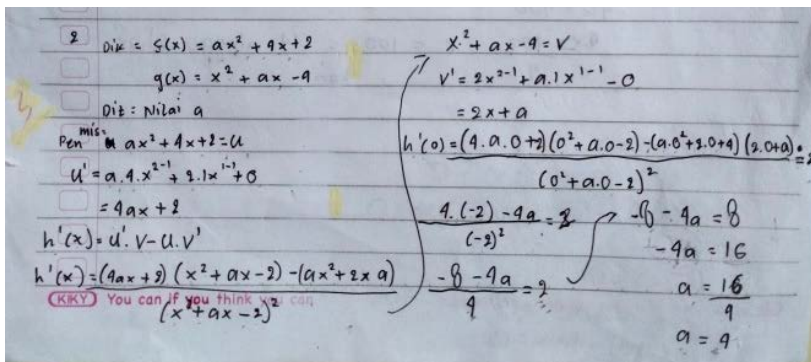 2 Dik = f(x) = ax² + 4x + 2
g(x) = x² + ax - 4
Dit : Nilai a
Pen mis: ax² + 4x + 2 = u
u' = a.4.x²⁻¹ + 2.1x¹⁻¹ + 0
= 4ax + 2
h'(x) = u'.v - u.v'
h'(x) = (4ax + 2) (x² + ax - 2) - (ax² + 2x a)
(x² + ax - 2)²
KIKY You can if you think you can
x² + ax - 4 = v
v' = 2x²⁻¹ + a.1x¹⁻¹ - 0
= 2x + a
h'(0) = (4.a.0 + 2) (0² + a.0 - 2) - (a.0² + 2.0 + 4) (2.0 + a) = 2
(0² + a.0 - 2)²
4.(-2) - 4a = 2
(-2)²
-8 - 4a = 2
4
-8 - 4a = 8
-4a = 16
a = 16
4
a = 4